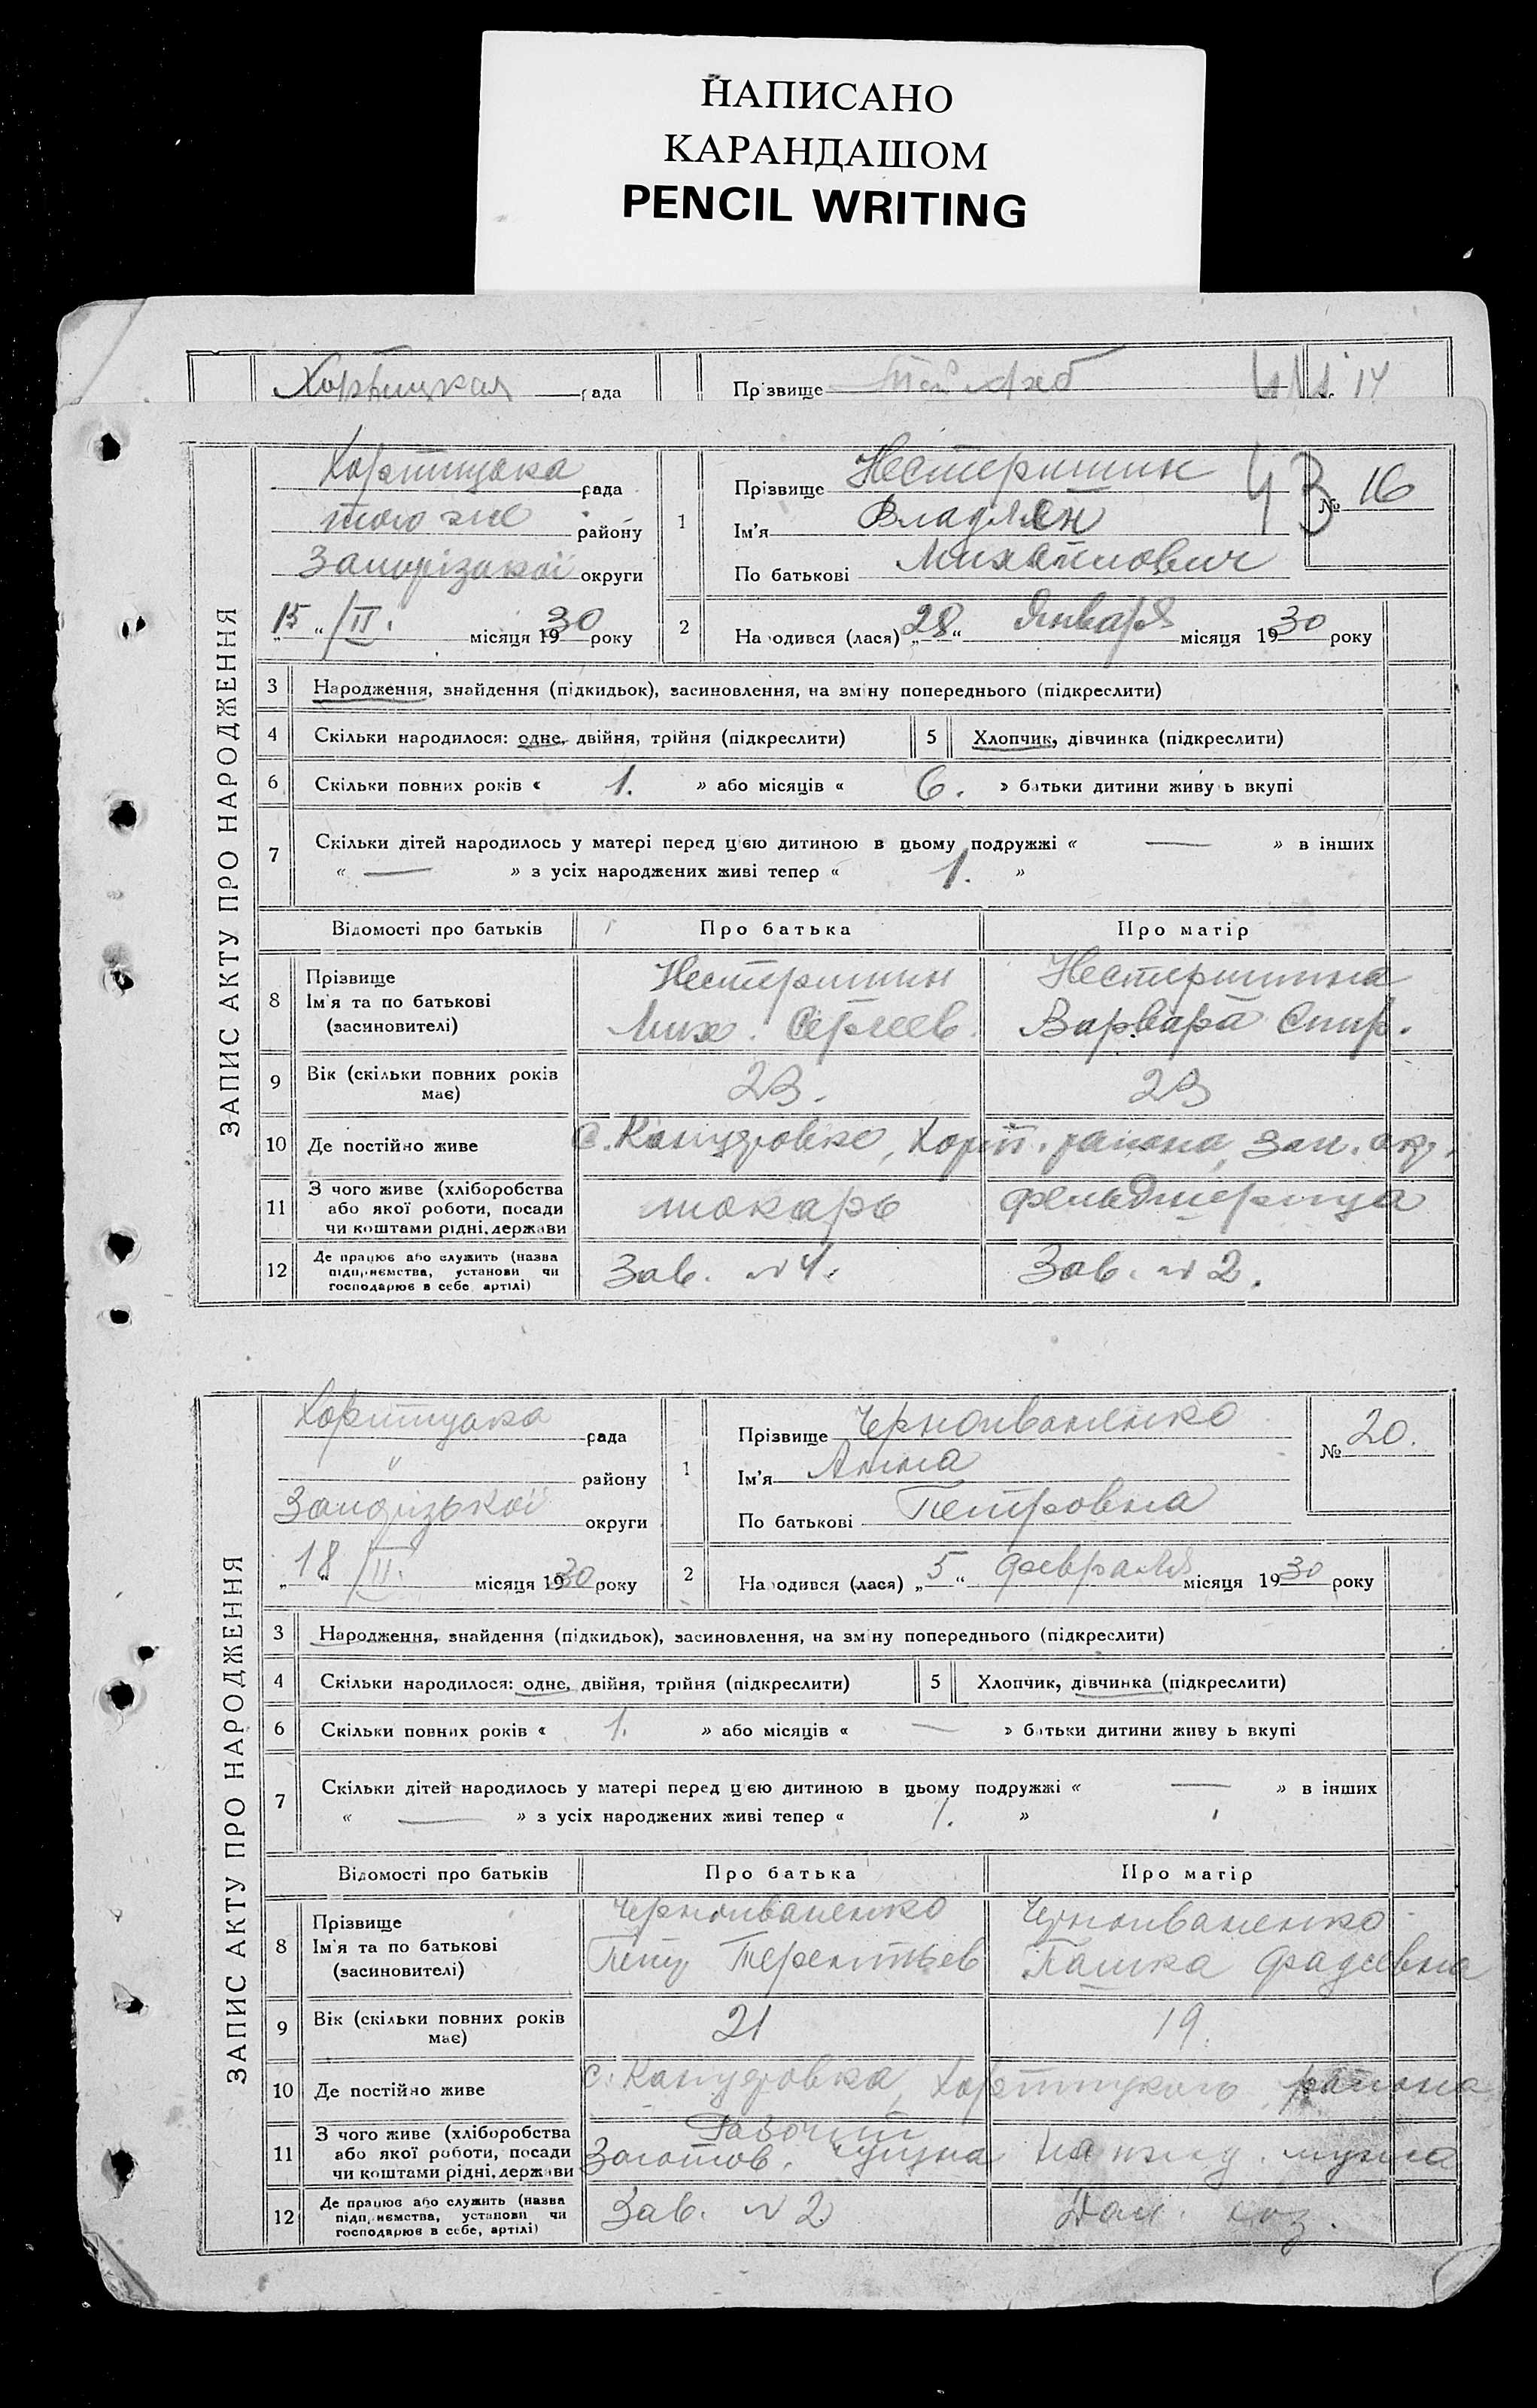 НАПИСАНО
КАРАНДАШОМ
PENCIL WRITING
Хортицкая рада
Прізвище
№ 14
ЗАПИС АКТУ ПРО НАРОДЖЕННЯ
Хортицька рада
того же району
Запорізької округи
"15" /II. місяця 1930 року
1 Прізвище Нестеришин
Ім'я Владлен
По батькові Михайлович
43
№ 16
2 Народився (лася) „28“ Января місяця 1930 року
3 Народження, знайдення (підкидьок), засиновлення, на зміну попереднього (підкреслити)
4 Скільки народилося: одне, двійня, трійня (підкреслити)
5 Хлопчик, дівчинка (підкреслити)
6 Скільки повних років « 1. » або місяців « 6. » батьки дитини живуть вкупі
7 Скільки дітей народилось у матері перед цією дитиною в цьому подружжі « — » в інших
« — » з усіх народжених живі тепер « 1. »
Відомості про батьків Про батька Про матір
8 Прізвище
Ім'я та по батькові
(засиновителі)
Нестеришин
Мих. Сергеев.
Нестеришина
Варвара Спир.
9 Вік (скільки повних років має) 23. 23
10 Де постійно живе с. Канцеровке, Хорт. района, Зап. окр.
11 З чого живе (хліборобства
або якої роботи, посади
чи коштами рідні, держави
токарь
фельдшерица
12 Де працює або служить (назва
підприємства, установи чи
господарює в себе, артілі)
Зав. № 4.
Зав. № 2.
ЗАПИС АКТУ ПРО НАРОДЖЕННЯ
Хортицька рада
" району
Запорізької округи
„18 /II. місяця 1930 року
1 Прізвище Черноиваненко
Ім'я Анна
По батькові Петровна
№ 20.
2 Народився (лася) „5“ февраля місяця 1930 року
3 Народження, знайдення (підкидьок), засиновлення, на зміну попереднього (підкреслити)
4 Скільки народилося: одне, двійня, трійня (підкреслити)
5 Хлопчик, дівчинка (підкреслити)
6 Скільки повних років « 1. » або місяців « — » батьки дитини живуть вкупі
7 Скільки дітей народилось у матері перед цією дитиною в цьому подружжі « — » в інших
« — » з усіх народжених живі тепер « 1. »
Відомості про батьків Про батька Про матір
8 Прізвище
Ім'я та по батькові
(засиновителі)
Черноиваненко
Петр Терентьев
Черноиваненко
Пашка Фадеевна
9 Вік (скільки повних років має) 21 19.
10 Де постійно живе с. Канцеровка, Хортицкого района
11 З чого живе (хліборобства
або якої роботи, посади
чи коштами рідні, держави
Рабочий
на ижд. мужа
12 Де працює або служить (назва
підприємства, установи чи
господарює в себе, артілі)
Зав. № 2
Дом. хоз.